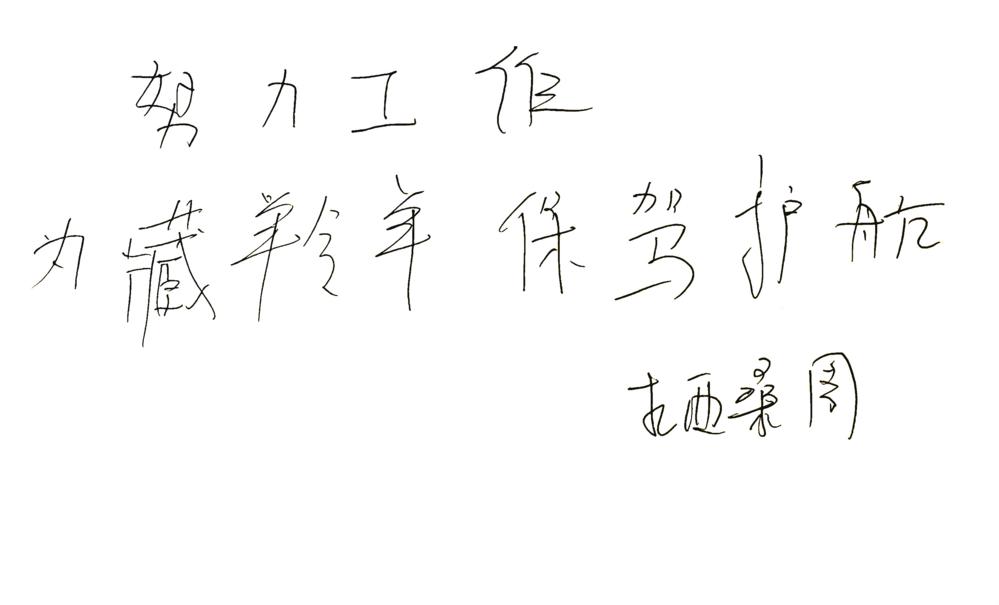 努力工作
为藏羚羊保驾护航
扎西桑周